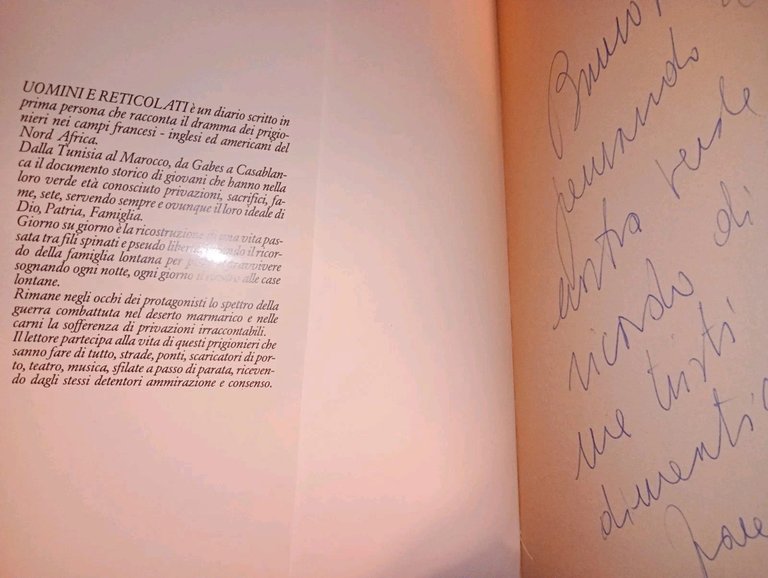 UOMINI E RETICOLATI è un diario scritto in
prima persona che racconta il dramma dei prigio-
nieri nei campi francesi - inglesi ed americani del
Nord Africa.
Dalla Tunisia al Marocco, da Gabes a Casablan-
ca il documento storico di giovani che hanno nella
loro verde età conosciuto privazioni, sacrifici, fa-
me, sete, servendo sempre e ovunque il loro ideale di
Dio, Patria, Famiglia.
Giorno su giorno è la ricostruzione di una vita pas-
sata tra fili spinati e pseudo libertà il ricor-
do della famiglia lontana per sopravvivere
sognando ogni notte, ogni giorno il alle case
lontane.
Rimane negli occhi dei protagonisti lo spettro della
guerra combattuta nel deserto marmarico e nelle
carni la sofferenza di privazioni irraccontabili.
Il lettore partecipa alla vita di questi prigionieri che
sanno fare di tutto, strade, ponti, scaricatori di por-
to, teatro, musica, sfilate a passo di parata, riceven-
do dagli stessi detentori ammirazione e consenso.
pensando
nostra verde
ricordo di